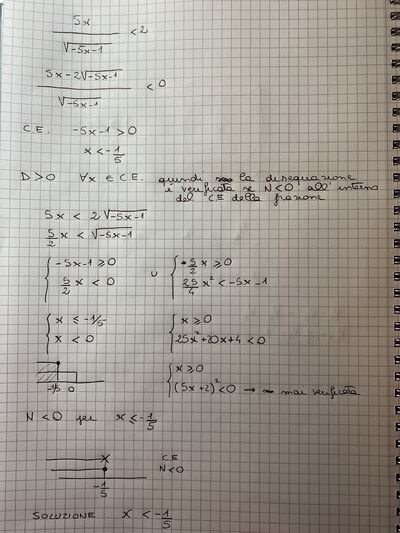 5x / √-5x-1 < 2
5x-2√-5x-1 / √-5x-1 < 0
C.E. -5x-1>0
x<-1/5
D>0 ∀x ∈ C.E. quindi la disequazione
è verificata se N<0 all'interno
del CE della frazione
5x < 2√-5x-1
5/2 x < √-5x-1
{ -5x-1 ⩾ 0 ∪ { 5/2 x ⩾ 0
5/2 x < 0 25/4 x² < -5x-1
{ x ⩽ -1/5 { x ⩾ 0
x < 0 25x²+20x+4 < 0
{ x ⩾ 0
-1/5 0 (5x+2)² < 0 → mai verificata
N < 0 per x ⩽ -1/5
C.E
N<0
-1/5
SOLUZIONE x < -1/5